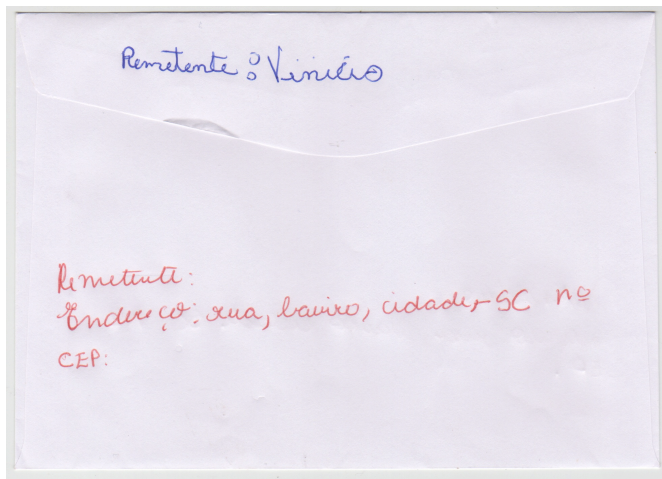 Remetente: Vinício
Remetente:
Endereço: rua, bairro, cidade, - SC nº
CEP: